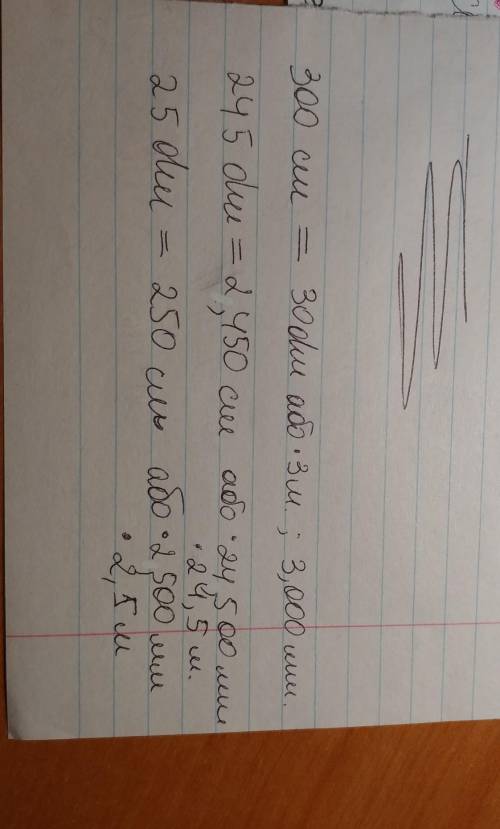 300 см = 30дм або · 3 м. ; 3,000 мм.
245 дм = 2,450 см або · 24,500 мм
· 24,5 м.
25 дм = 250 см або · 2,500 мм
· 2,5 м